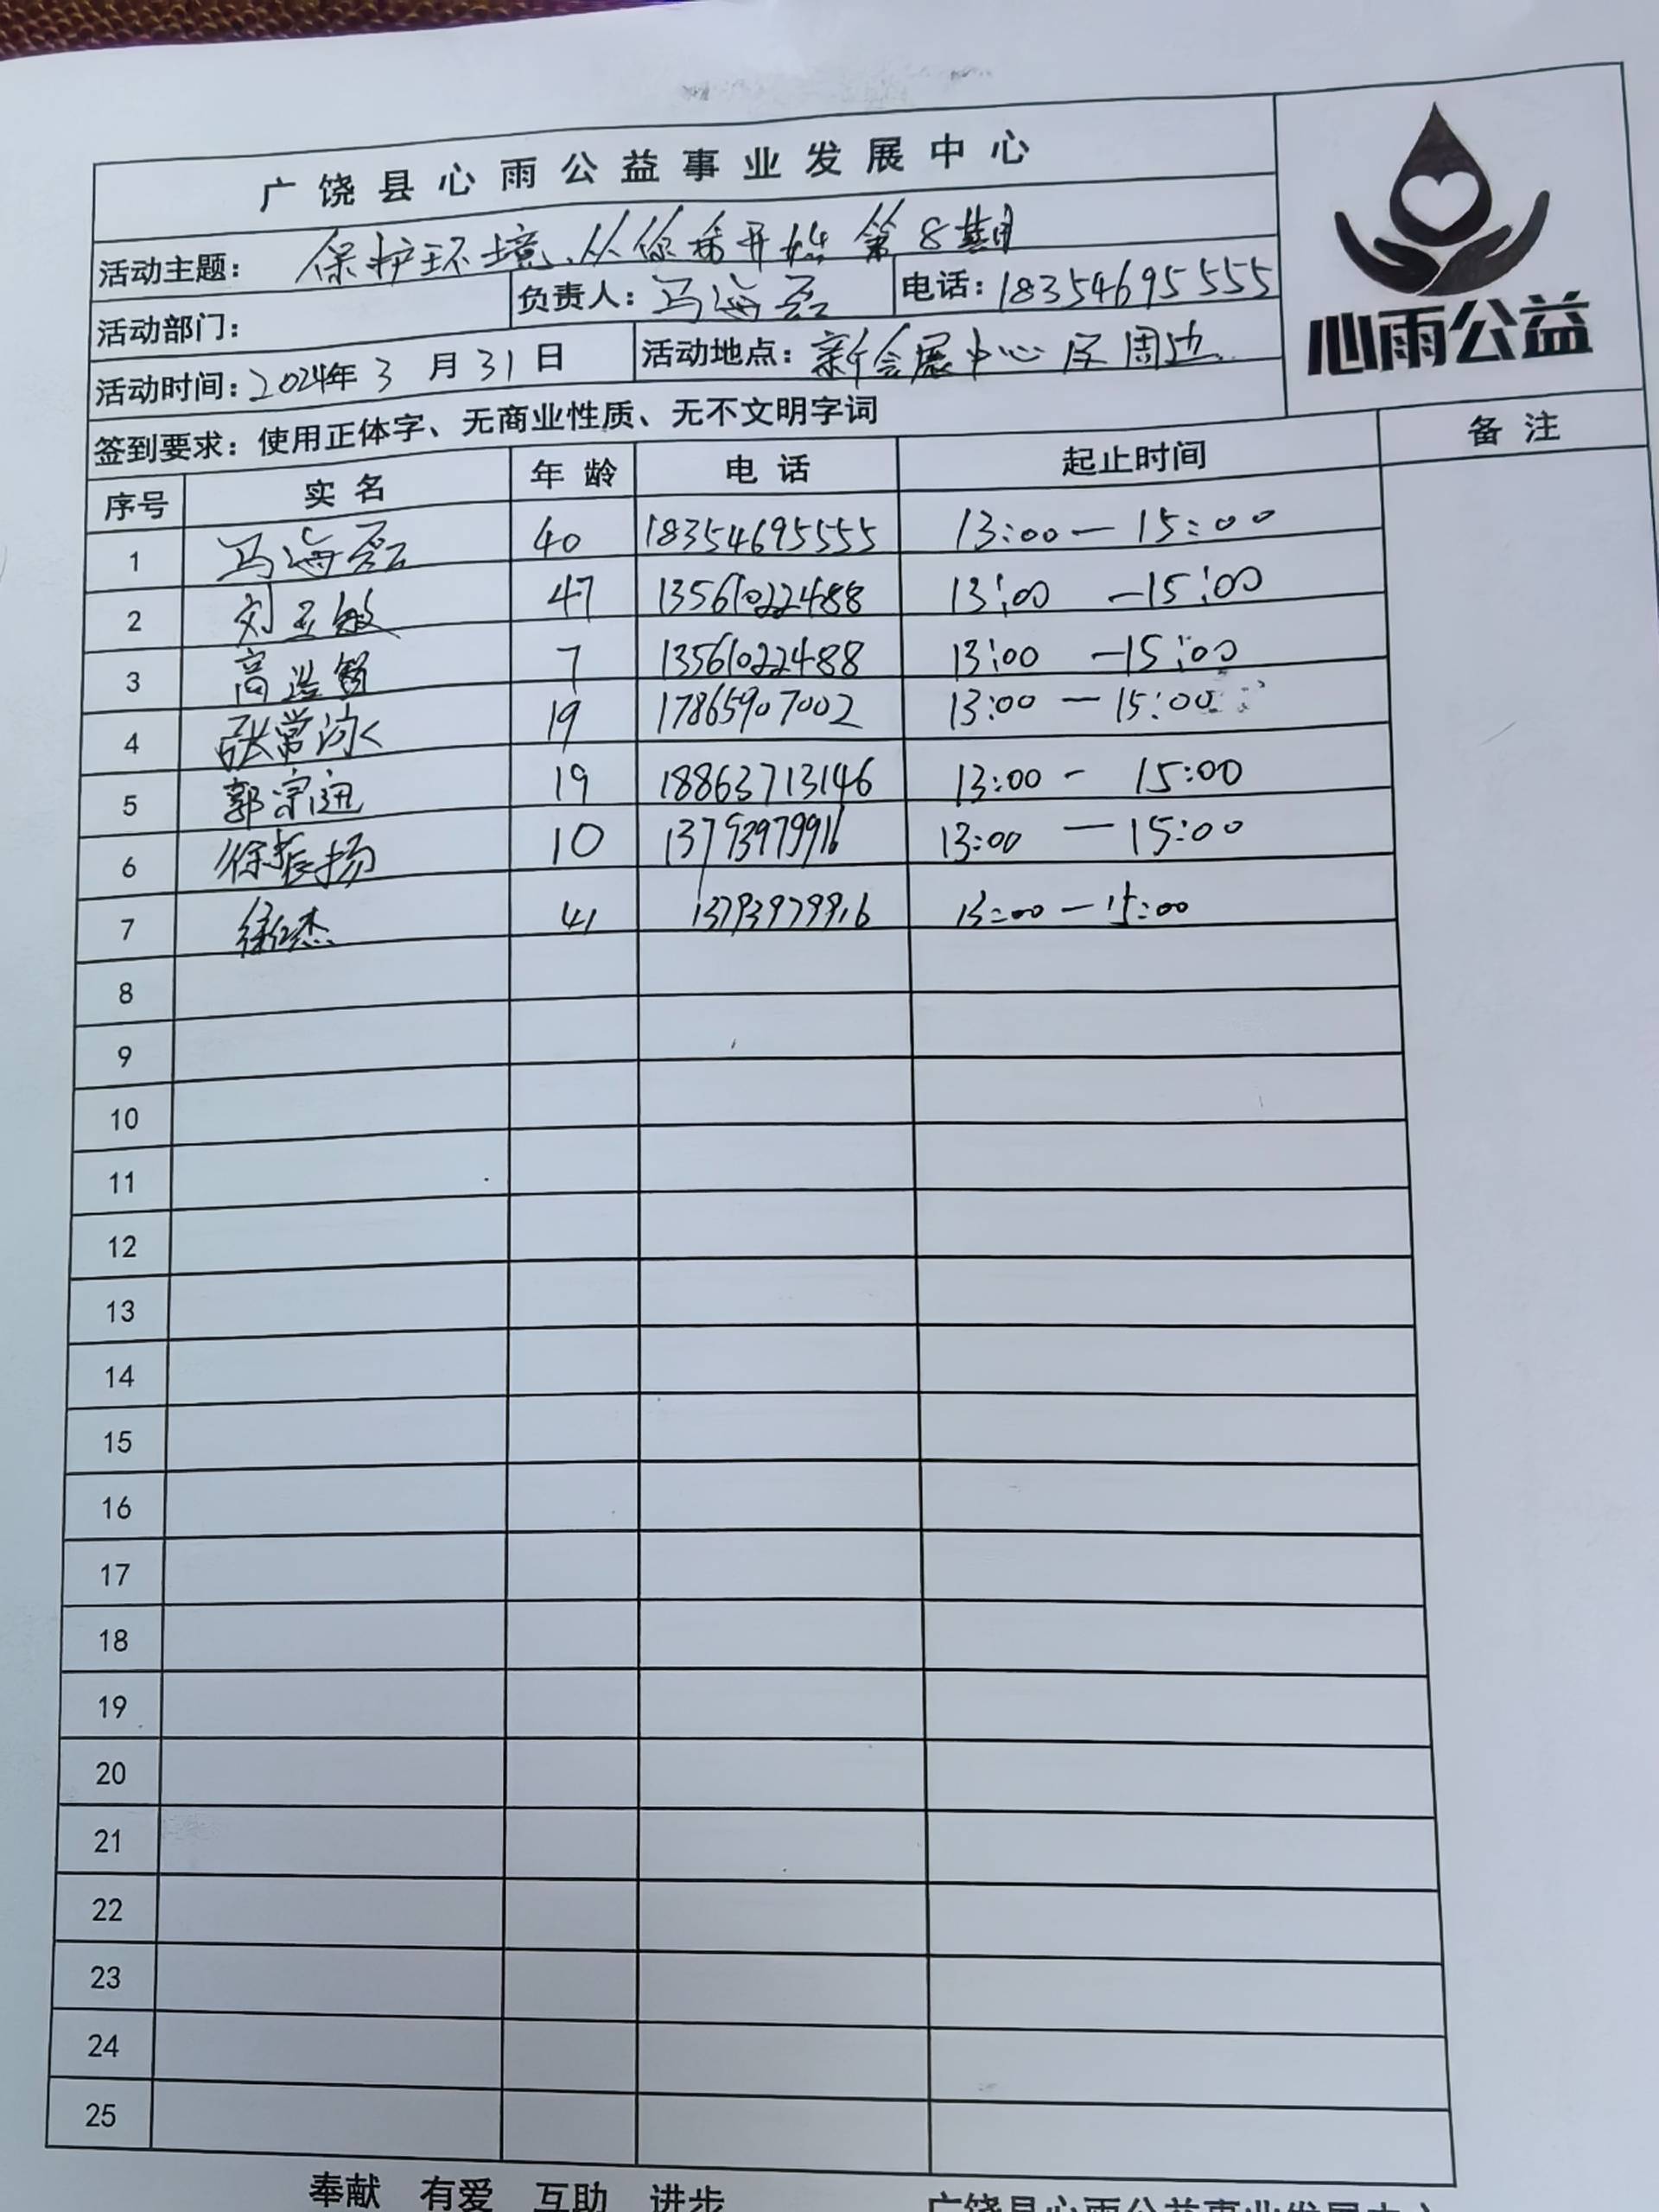 广饶县心雨公益事业发展中心
心雨公益
活动主题：保护环境、从你我开始 第8期
活动部门： 负责人：马海磊 电话：18354695555
活动时间：2024年3月31日 活动地点：新会展中心及周边
签到要求：使用正体字、无商业性质、无不文明字词
序号 实名 年龄 电话 起止时间 备注
1 马海磊 40 18354695555 13:00—15:00
2 刘玉敏 47 13561022488 13:00 —15:00
3 高 7 13561022488 13:00 —15:00
4 张常泳 19 17865907002 13:00 —15:00
5 郭宗迅 19 18863713146 13:00 - 15:00
6 徐振扬 10 13793979916 13:00 —15:00
7 徐红杰 41 13793979916 13:00—15:00
8
9
10
11
12
13
14
15
16
17
18
19
20
21
22
23
24
25
奉献 有爱 互助 进步 广饶县心雨公益事业发展中心